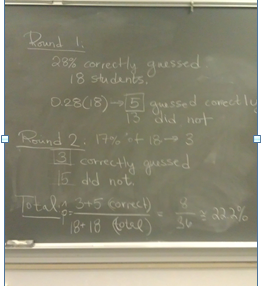 Round 1:
28% correctly guessed
18 students.
0.28(18) → 5 guessed correctly
13 did not
Round 2: 17% of 18 → 3
3 correctly guessed
15 did not.
Total: p = 3+5 (correct) / 18+18 (total) = 8/36 ≅ 22.2%